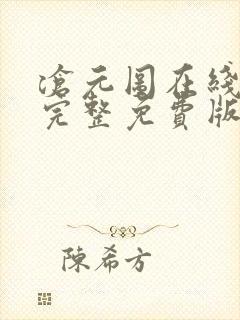 滄元图在线
完整免費版
陳希方